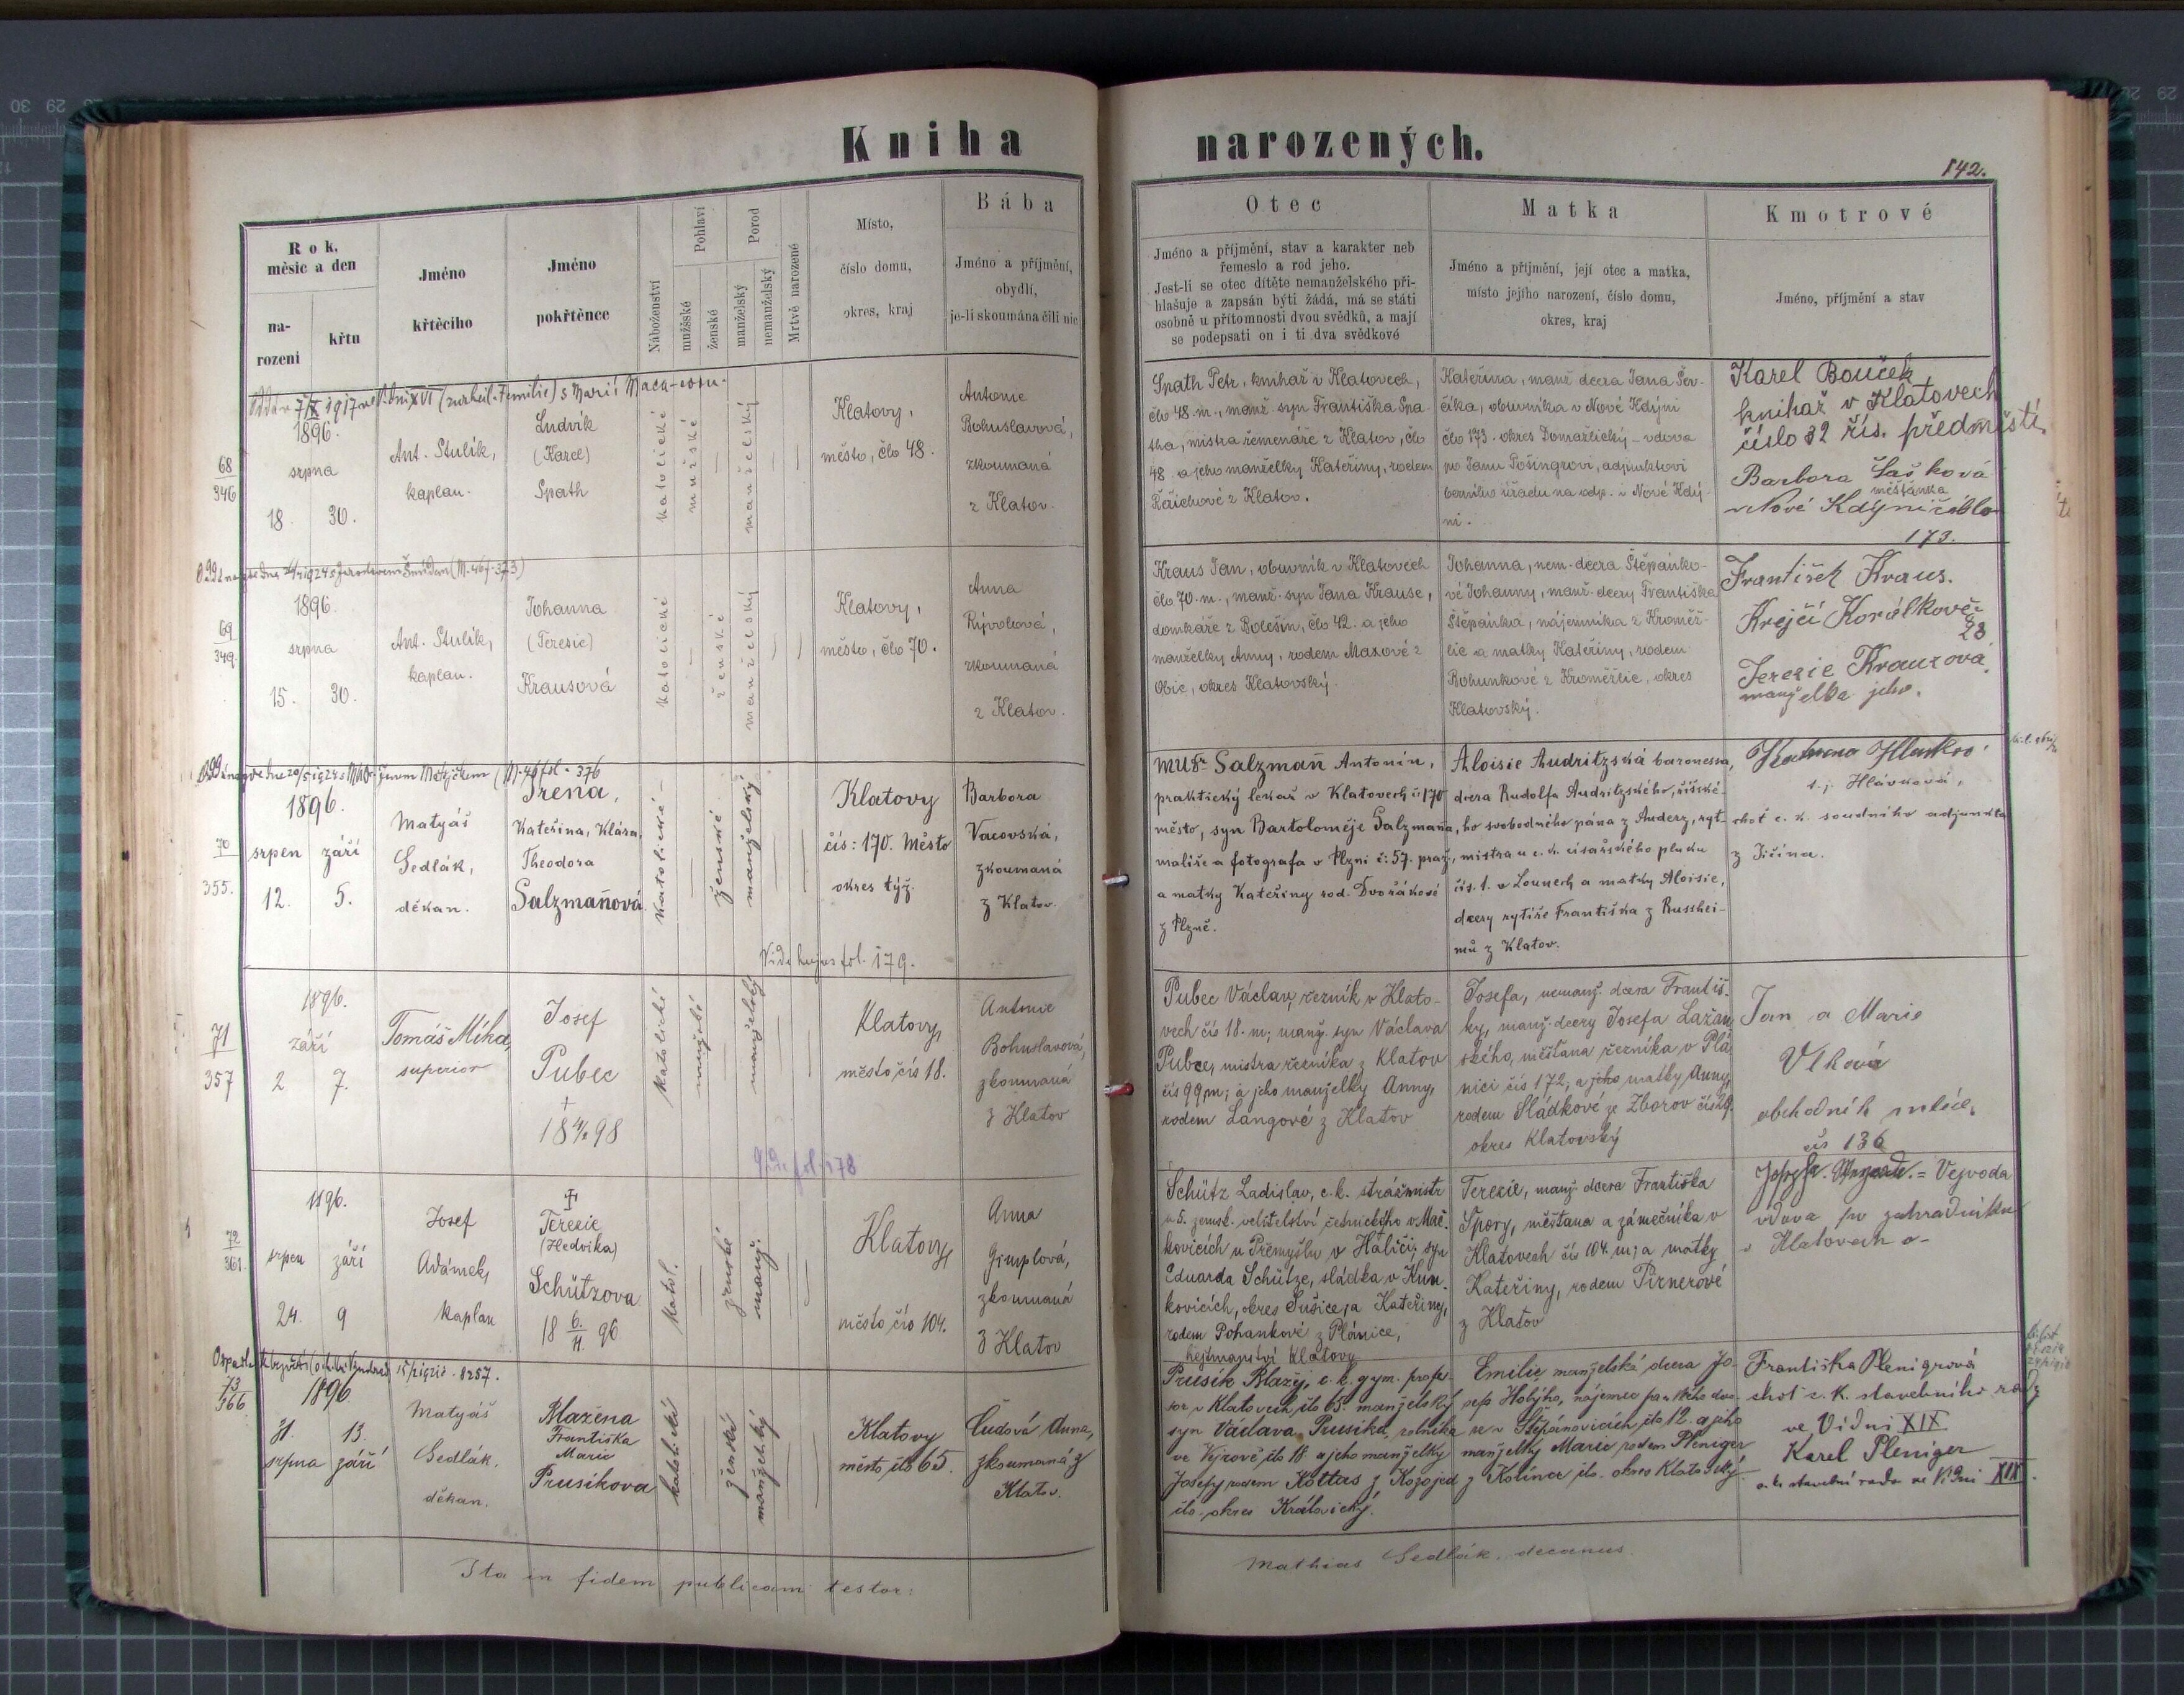 Kniha narozených.
142.
Rok, měsíc a den
narození
křtu
Jméno křtícího
Jméno pokřtěnce
Náboženství
Pohlaví
mužské
ženské
Porod
manželský
nemanželský
Mrtvě narozené
Místo,
číslo domu,
okres, kraj
Bába
Jméno a příjmění,
obydlí,
je-li zkoumána čili nic
Otec
Jméno a příjmění, stav a karakter neb
řemeslo a rod jeho.
Jest-li se otec dítěte nemanželského při-
hlašuje a zapsán býti žádá, má se státi
osobně u přítomnosti dvou svědků, a mají
se podepsati on i ti dva svědkové
Matka
Jméno a příjmění, její otec a matka,
místo jejího narození, číslo domu,
okres, kraj
Kmotrové
Jméno, příjmění a stav
68
346
1896.
srpna
18. 30.
Ant. Stulík,
kaplan.
Ludvík
(Karel)
Spath
katolické
mužské
manželský
Klatovy,
město, člo 48.
Antonie
Bohuslavová,
zkoumaná
z Klatov.
Spath Petr, knihař v Klatovech,
člo 48. m., manž. syn Františka Spa-
tha, mistra řemenáře z Klatov, člo
48. a jeho manželky Kateřiny, rodem
z Klatov.
Kateřina, manž. dcera Jana Šev-
číka, obuvníka v Nové Kdyni
člo 173. okres Domažlický - vdova
po Janu Pošingrovi, adjunktovi
berního úřadu na odp. v Nové Kdy-
ni.
Karel Bouček
knihař v Klatovech
číslo 32 říš. předměstí.
Barbora
měštánka
v Nové Kdyni číslo
173.
69
349.
1896.
srpna
15. 30.
Ant. Stulík,
kaplan.
Johanna
(Terezie)
Krausová
katolické
ženské
manželský
Klatovy,
město, člo 70.
Anna
zkoumaná
z Klatov.
Kraus Jan, obuvník v Klatovech
člo 70. m., manž. syn Jana Krause,
domkáře z Bolešin, člo 42. a jeho
manželky Anny, rodem Maxové z
okres Klatovský.
Johanna, nem. dcera Štěpánko-
vé Johanny, manž. dcery Františka
Štěpánka, nájemníka z Kroměž-
lic a matky Kateřiny, rodem
Bohunkové z Kroměžlic, okres
Klatovský.
František Kraus.
Krejčí
23
Terezie Krausová
manželka jeho.
70
355.
1896.
srpen září
12. 5.
Matyáš
Sedlák,
děkan.
Irena,
Kateřina, Klára,
Theodora
Salzmaňová.
katolické
ženské
manželský
Klatovy
čís: 170. Město
okres týž.
Barbora
Vacovská,
zkoumaná
z Klatov.
Vide hujus fol. 179.
MUDr. Salzmaň Antonín,
praktický lékař v Klatovech č. 170
město, syn Bartoloměje Salzmaňa,
malíře a fotografa v Plzni č: 57. praž.,
a matky Kateřiny rod. Dvořákové
z Plzně.
Aloisie Audritzská baronessa,
dcera Rudolfa Audritzského, říšské-
ho svobodného pána z Auderz, ryt-
mistra u c. k. císařského pluku
čís. 1. v Lounech a matky Aloisie,
dcery rytíře Františka z Russhei-
mů z Klatov.
t. j. Hlávková,
choť c. k. soudního adjunkta
z Jičína.
71
357
1896.
září
2 7.
Tomáš Míka,
superior
Josef
Pubec
+
katolické
manželský
Klatovy,
město čís 18.
Antonie
Bohuslavová,
zkoumaná
z Klatov
Pubec Václav, řezník v Klato-
vech čís 18. m; manž. syn Václava
Pubce, mistra řezníka z Klatov
čís 99 m; a jeho manželky Anny,
rodem Langové z Klatov
Josefa, nemanž. dcera Františ-
ky, manž. dcery Josefa Lažan-
ského, měšťana řezníka v Plá-
nici čís 172, a jeho matky Anny,
rodem Sládkové ze Zborov
okres Klatovský
Jan a Marie
Vlková
obchodník
čís 136
72
361.
1896.
srpen září
24. 9
Josef
Adámek,
kaplan
Terezie
(Hedvika)
Schützova
18 6./11. 96
katol.
ženské
manž.
Klatovy,
město čís 104.
Anna
Gimplová,
zkoumaná
z Klatov
Schütz Ladislav, c. k. strážmistr
u 5. zemsk. velitelství četnického v Mač-
kovicích u Přemyšlu v Haliči; syn
Eduarda Schütze, sládka v Kun-
kovicích, okres Sušice, a Kateřiny,
rodem Pohankové z Plánice,
hejtmanství Klatovy
Terezie, manž. dcera Františka
Spory, měšťana a zámečníka v
Klatovech čís 104. m; a matky
Kateřiny, rodem Pirnerové
z Klatov
= Vejvoda
vdova po zahradníku
v Klatovech
73
366
1896
31. 13.
srpna září
Matyáš
Sedlák,
děkan.
Blažena
Františka
Marie
Prusíkova
katolické
ženské
manželský
Klatovy
město čło 65.
Čudová Anna,
zkoumaná z
Klatov.
Prusík Blažej, c. k. gym. profes-
sor v Klatovech čło 65. manželský
syn Václava Prusíka, rolníka
čło 18 a jeho manželky
Josefy rodem Kottas z Kozojed
čło - okres Královický.
Emilie, manželská dcera Jo-
sefa
v Štěpánovicích, čło 12. a jeho
manželky Marie rodem Pleniger
z Kolína čło - okres
Františka Plenigrová
choť c. k. stavebního rady
ve Vídni XIX
Karel Pleniger
c. k. stavební rada ve Vídni XIX.
Ita in fidem publicam testor:
Mathias Sedlák, decanus.